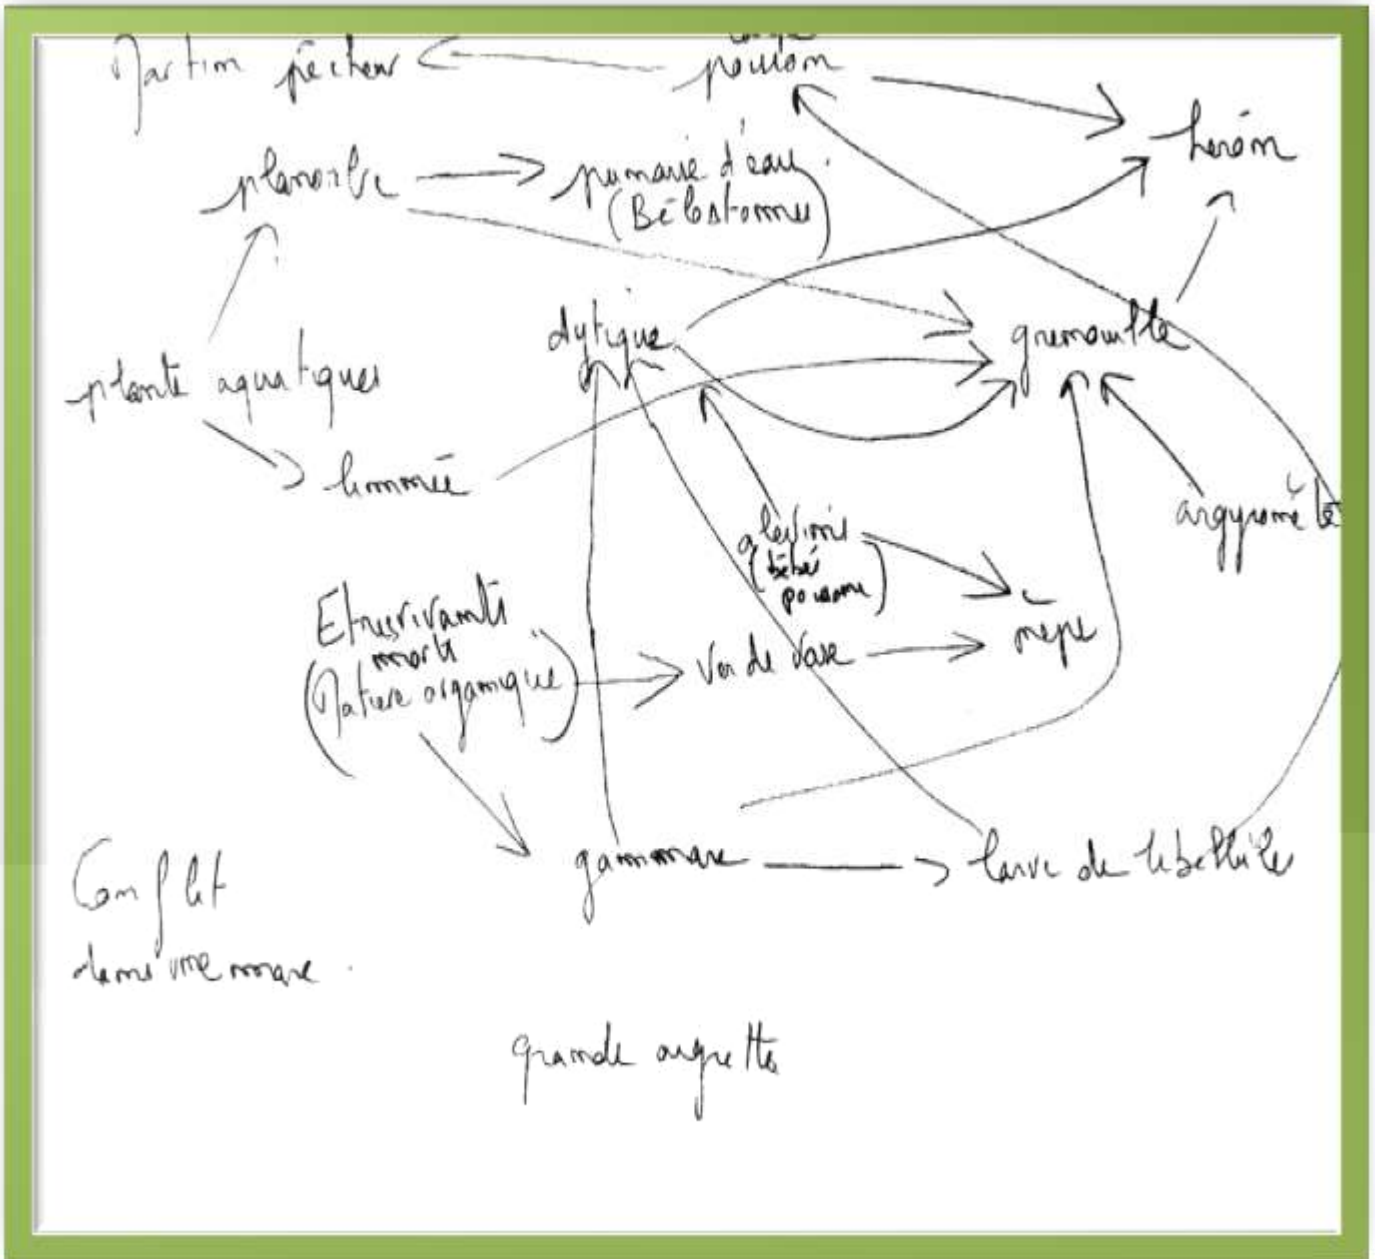 Martin pêcheur
poisson
héron
planorbe
punaise d'eau.
(Bélostomes)
dytique
grenouille
plante aquatiques
limnée
argyronète
alevins
(bébé
poissons)
Etresvivants
morts
(Matière organique)
Ver de vase
nèpe
gammare
larve de libellules
Conflit
dans une mare.
grande aigrette